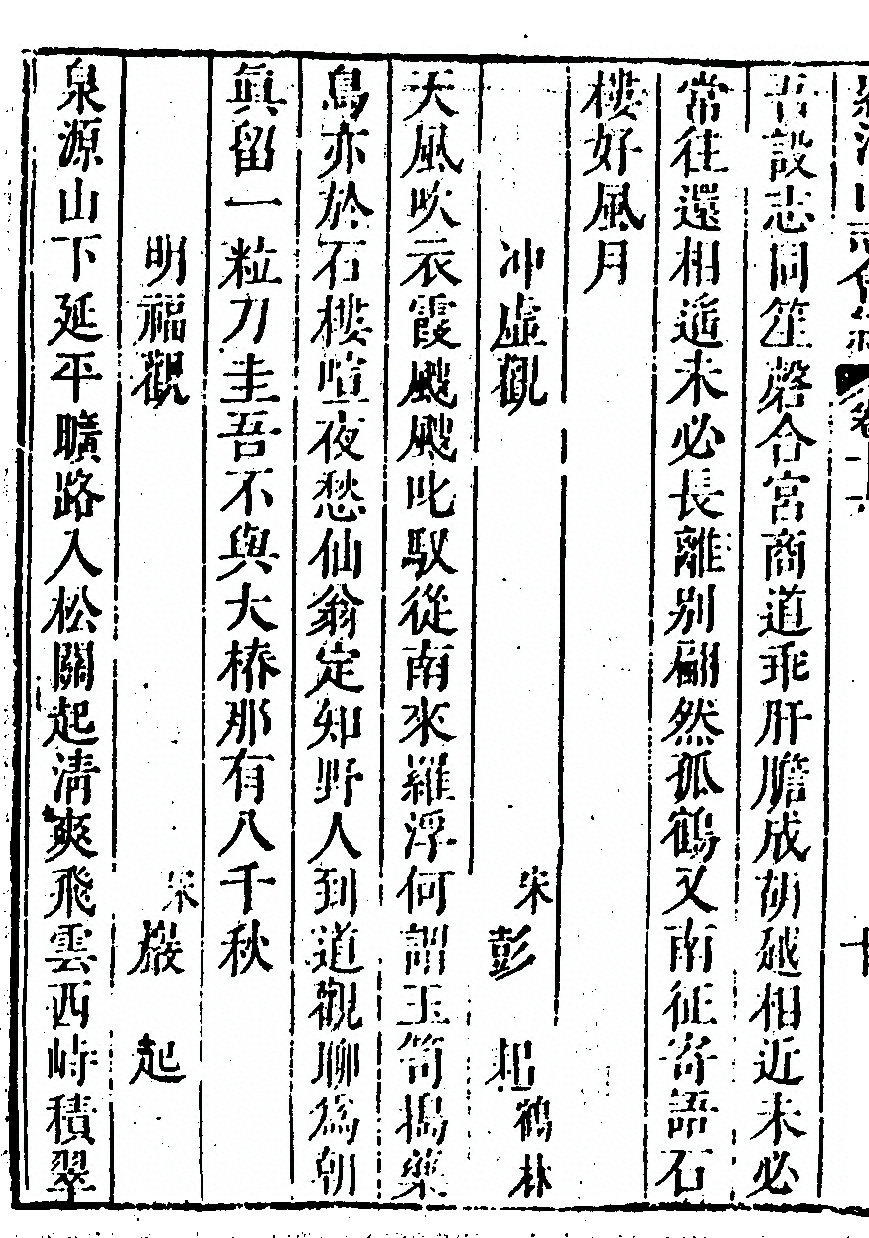 羅浮山志會編 卷十六 十
吾設志同笙磬合宮商道乖肝膽成胡越相近未必
常往還相遥未必長離别翩然孤鶴又南征寄語石
樓好風月
冲虛觀 宋 彭 耜 鶴林
天風吹衣霞颼颼叱馭從南來羅浮何謂玉笥搗藥
鳥亦於石樓喧夜愁仙翁定知野人到道觀聊爲朝
眞留一粒刀圭吾不與大椿那有八千秋
明福觀 宋 嚴 起
泉源山下延平曠路入松關起清爽飛雲西峙積翠